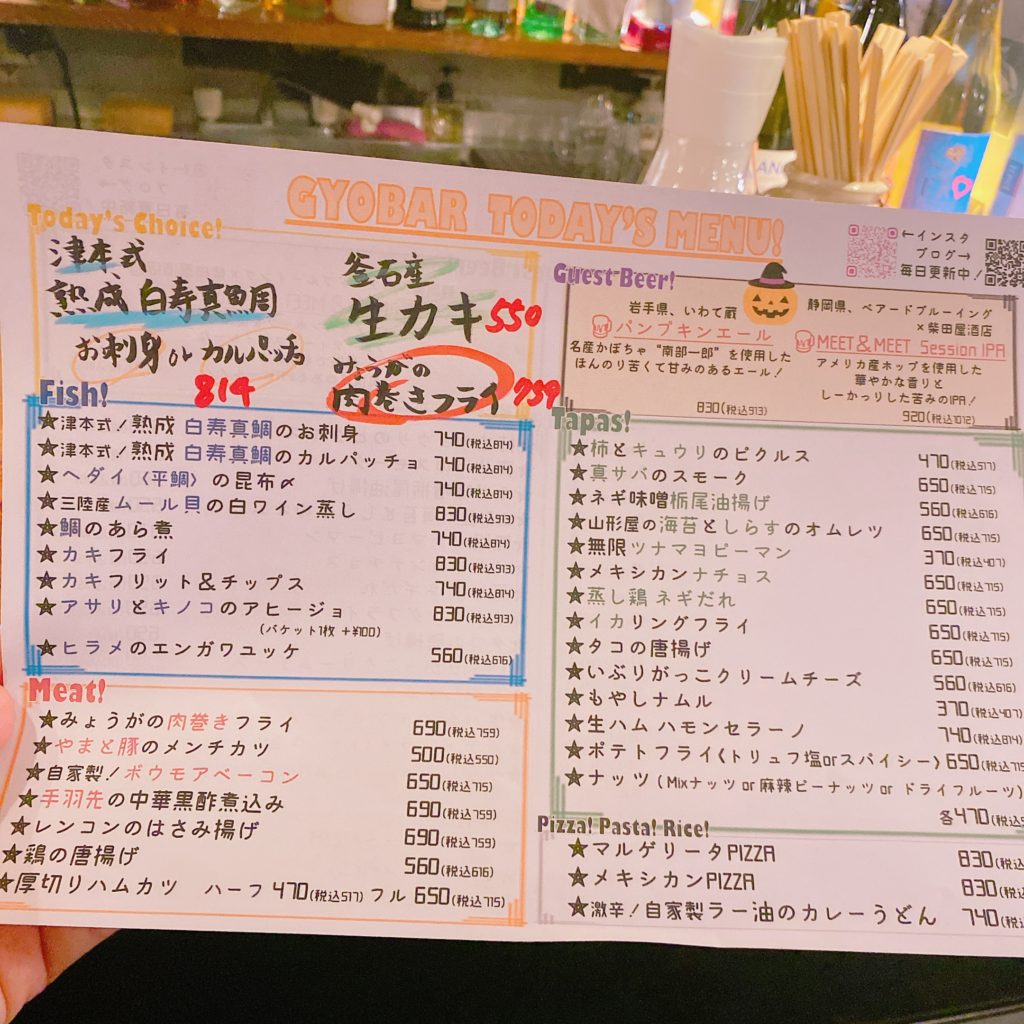 GYOBAR TODAY'S MENU!
←インスタ
ブログ→
毎日更新中!
Today's Choice!
津本式
熟成 白寿真鯛
お刺身 or カルパッチョ
814
釜石産
生カキ 550
みょうがの
肉巻きフライ 759
Guest Beer!
岩手県、いわて蔵
パンプキンエール
名産かぼちゃ “南部一郎” を使用した
ほんのり苦くて甘みのあるエール!
830(税込913)
静岡県、ベアードブルーイング
×柴田屋酒店
MEET&MEET Session IPA
アメリカ産ホップを使用した
華やかな香りと
しーかっりした苦みのIPA!
920(税込1012)
Fish!
★津本式!熟成 白寿真鯛のお刺身 740(税込814)
★津本式!熟成 白寿真鯛のカルパッチョ 740(税込814)
★ヘダイ〈平鯛〉の昆布〆 740(税込814)
★三陸産ムール貝の白ワイン蒸し 830(税込913)
★鯛のあら煮 740(税込814)
★カキフライ 830(税込913)
★カキフリット&チップス 740(税込814)
★アサリとキノコのアヒージョ 830(税込913)
(バケット1枚 +¥100)
★ヒラメのエンガワユッケ 560(税込616)
Meat!
★みょうがの肉巻きフライ 690(税込759)
★やまと豚のメンチカツ 500(税込550)
★自家製!ボウモアベーコン 650(税込715)
★手羽先の中華黒酢煮込み 690(税込759)
★レンコンのはさみ揚げ 690(税込759)
★鶏の唐揚げ 560(税込616)
★厚切りハムカツ ハーフ 470(税込517) フル 650(税込715)
Tapas!
★柿とキュウリのピクルス 470(税込517)
★真サバのスモーク 650(税込715)
★ネギ味噌栃尾油揚げ 560(税込616)
★山形屋の海苔としらすのオムレツ 650(税込715)
★無限ツナマヨピーマン 370(税込407)
★メキシカンナチョス 650(税込715)
★蒸し鶏 ネギだれ 650(税込715)
★イカリングフライ 650(税込715)
★タコの唐揚げ 650(税込715)
★いぶりがっこクリームチーズ 560(税込616)
★もやしナムル 370(税込407)
★生ハム ハモンセラーノ 740(税込814)
★ポテトフライ(トリュフ塩orスパイシー) 650(税込715
★ナッツ(Mixナッツ or 麻辣ピーナッツ or ドライフルーツ)
各470(税込5
Pizza! Pasta! Rice!
★マルゲリータPIZZA 830(税込
★メキシカンPIZZA 830(税込
★激辛!自家製ラー油のカレーうどん 740(税込